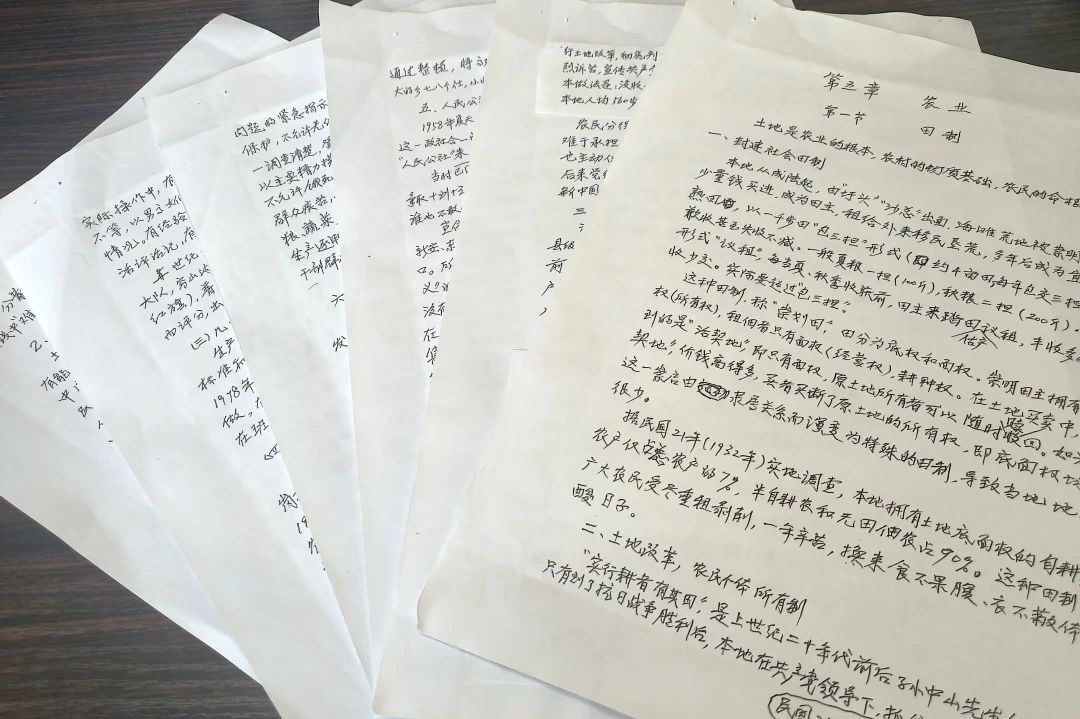 分省
2、土
有能
实际操作中,有
不等,以男主女
情况。有经验
活评活记,有
某世纪
大队,穷山
红旗),著
而评分,出
(三)九
生产
标准和
1978年
做,大
在班
(四
19
问题的紧急指示
保护,不允许无偿
一调查清楚,坚
以主要精力
不允许饿死
群众疾苦
粮、蔬菜
生产逐
干部群
六
发
通过整顿,将
大的乡七八个社,小
五、人民公
1958年夏
这一政社合一
"人民公社"来
当时巴
东欧十划十三
谁也不敢
宣
敦安、
口。所
义"
没有
在
行土地改革,彻底
烈诉苦,宣传共产
本做法是,没收
本地人均560步
农民分得
难于承担
也主动
后来党
新中国
三
县级
前
产
第三章 农业
第一节 田制
土地是农业的根本,农村的物质基础,农民的命根
一、封建社会田制
本地从成陆起,由"圩兴""沙总"出面,海滩荒地被崇明
少量钱买进,成为田主,租给外来移民垦荒,多年后成为宜
熟田,以一千步田"包三担"形式(即约4亩田每年包交三担
歉收甚至失收不减。一般夏粮一担(100斤),秋粮二担(200斤)。
形式"议租",每当夏、秋季收获前,田主来踏田估产议租,丰收多
收少交。实际要超过"包三担"。
这种田制,称"崇划田"。田分为底权和面权。崇明田主拥有
权(所有权),租佃者只有面权(经营权),耕种权。在土地买卖中,
到的是"活契地",即只有面权,原土地所有者可以随时赎回。如
契地",价钱高得多,买者买断了原土地的所有权,即底面权
这一崇启由隶属关系而演变为特殊的田制,导致当地地
很少。
据民国21年(1932年)实地调查,本地拥有土地底面权的自耕
农户仅占总农户的7%,半自耕农和无田佃农占90%。这种田制
广大农民受尽重租剥削,一年辛苦,换来食不果腹、衣不蔽体
酸日子。
二、土地改革,农民个体所有制
"实行耕者有其田",是上世纪二十年代前后孙中山先生
只有到了抗日战争胜利后,本地在共产党领导下,
民国